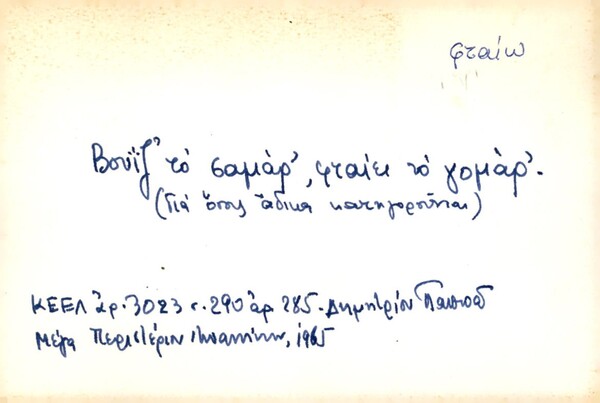 φταίω
Βουΐζ' τὸ σαμὰρ', φταίει τὸ γομὰρ'.
(Γιὰ ὅσους ἄδικα κατηγοροῦνται)
ΚΕΕΛ ἀρ. 3023 σ. 290 ἀρ. 285. Δημητρίου Παππᾶ
Μέγα Περιστέριν Ἰωαννίνων, 1965